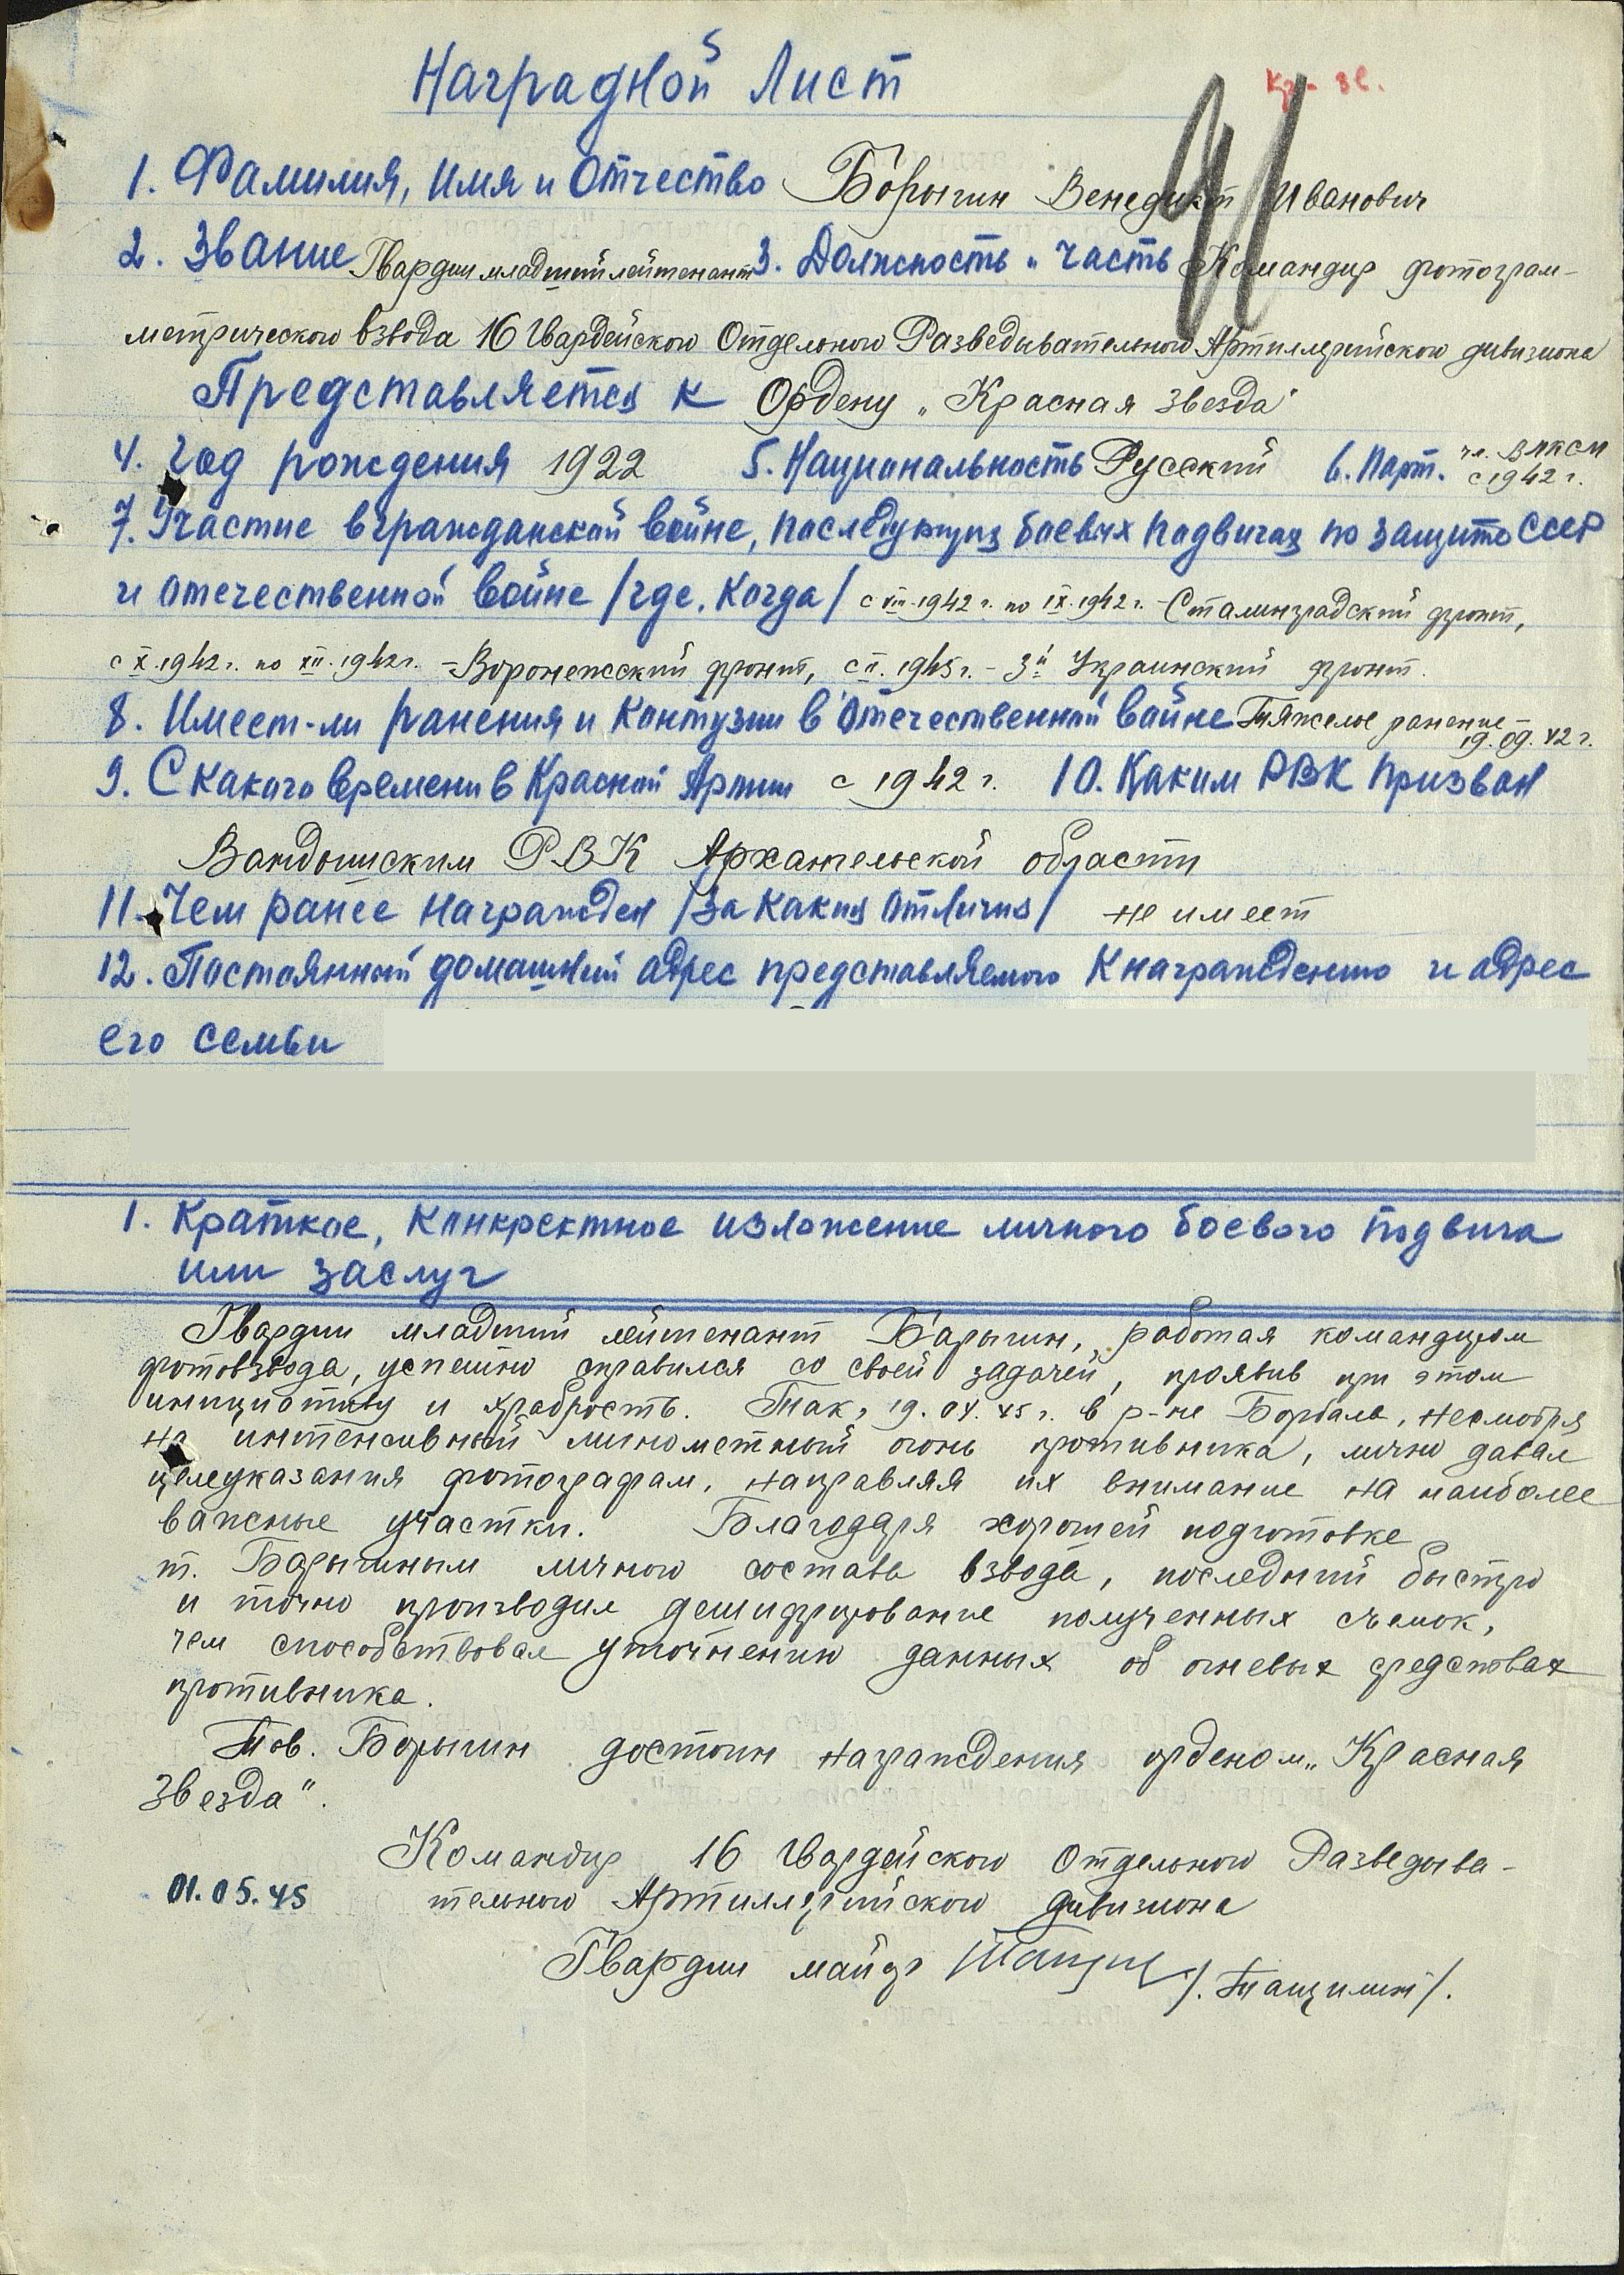 Наградной Лист
Кр. зв.
1. Фамилия, Имя и Отчество Барыгин Венедикт Иванович
2. Звание Гвардии младший лейтенант 3. Должность и часть Командир фотограм-
метрического взвода 16 Гвардейского Отдельного Разведывательного Артиллерийского дивизиона
Представляется к Ордену „Красная Звезда"
4. Год рождения 1922 5. Национальность Русский 6. Парт. чл. ВЛКСМ с 1942 г.
7. Участие в гражданской войне, последующих боевых подвигах по защите СССР
и отечественной войне /где, когда/ с VIII.1942 г. по IX.1942 г. - Сталинградский фронт,
с X.1942 г. по XII.1942 г. - Воронежский фронт, с II.1945 г. - 3й Украинский фронт.
8. Имеет-ли ранения и контузии в Отечественной войне Тяжелое ранение - 19.09.42 г.
9. С какого времени в Красной Армии с 1942 г. 10. Каким РВК призван
РВК Архангельской области
11. Чем ранее награжден /за какие отличия/ не имеет
12. Постоянный домашний адрес представляемого к награждению и адрес
его семьи
1. Краткое, конкректное изложение личного боевого подвига
или заслуг
Гвардии младший лейтенант Барыгин, работая командиром
фотовзвода, успешно справился со своей задачей, проявив при этом
инициативу и храбрость. Так, 19.04.45 г. в р-не несмотря
на интенсивный минометный огонь противника, лично давал
целеуказания фотографам, направляя их внимание на наиболее
важные участки. Благодаря хорошей подготовке
т. Барыгиным личного состава взвода, последний быстро
и точно производил дешифрирование полученных съемок,
чем способствовал уточнению данных об огневых средствах
противника.
Тов. Барыгин достоин награждения орденом „Красная
Звезда".
Командир 16 Гвардейского Отдельного Разведыва-
01.05.45 тельного Артиллерийского дивизиона
Гвардии майор